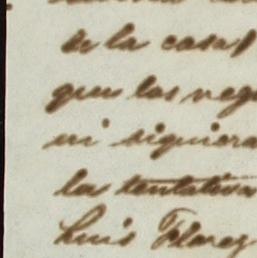 de la casa
que los veg
ni siquiera
las tentativa
Luis Florez